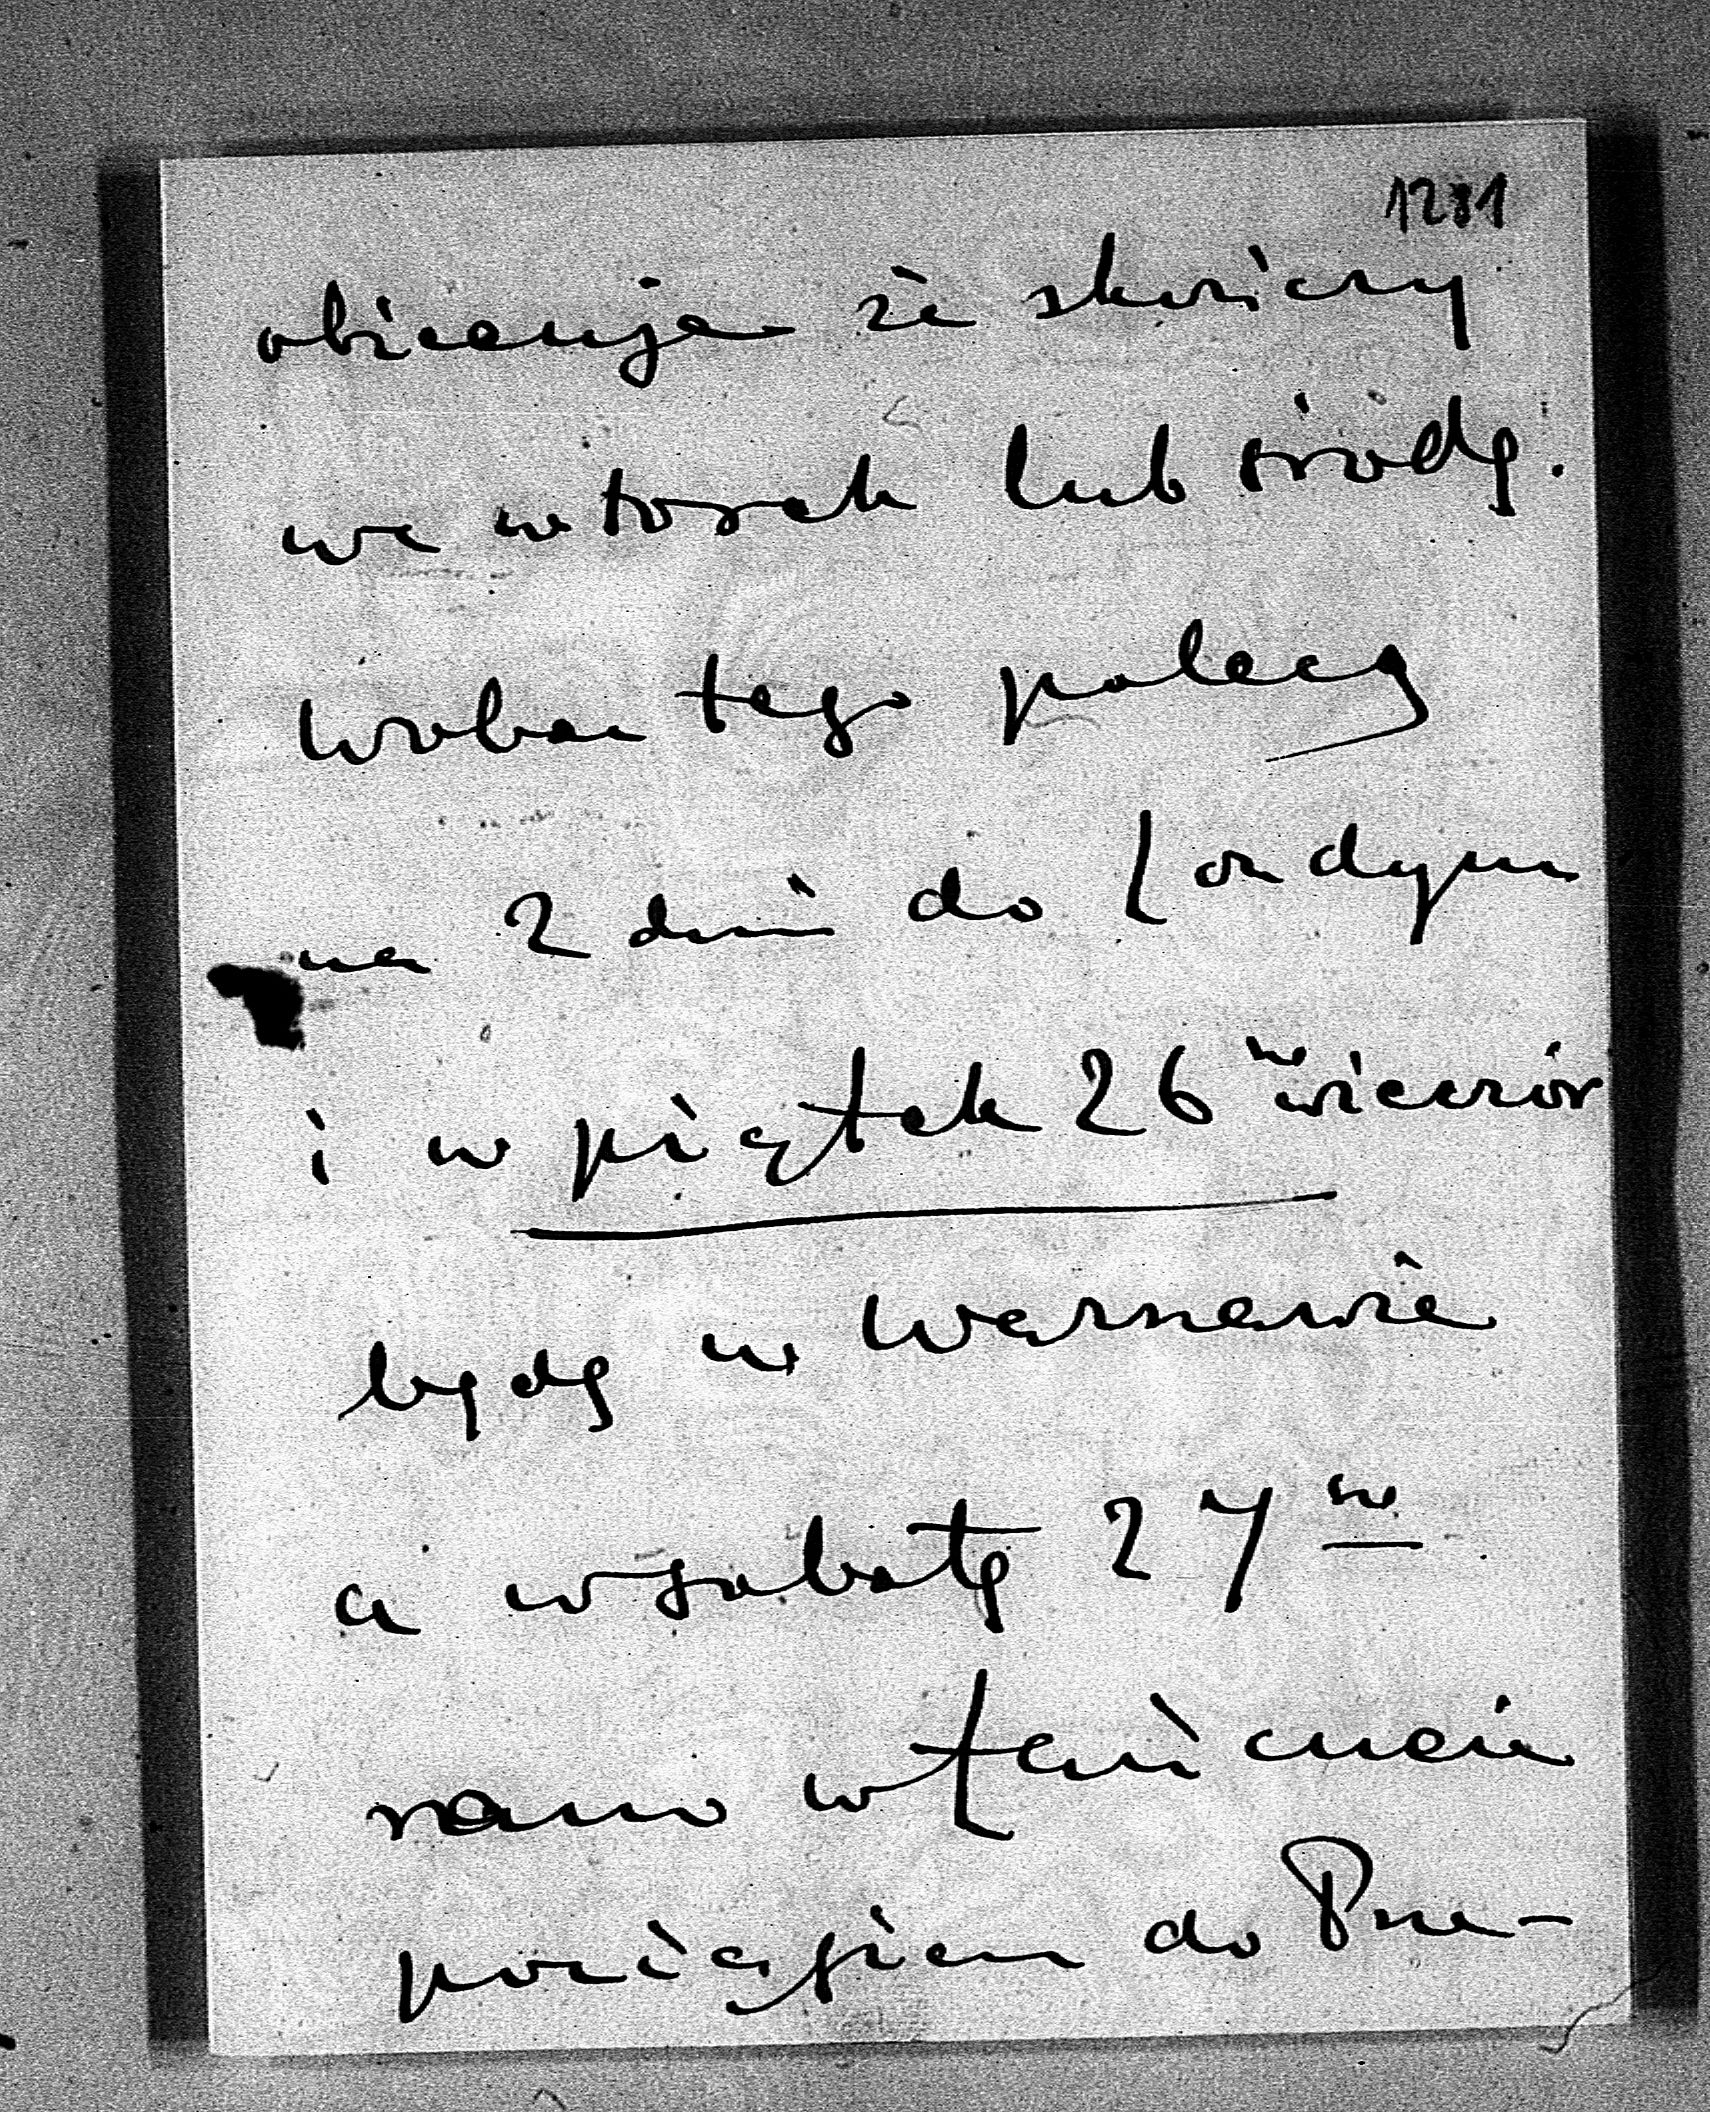 1281
obiecuje że skończy
we wtorek lub środę.
Wobec tego polecę
na 2 dni do Londynu
i w piątek 26 w wieczór
będę w Warszawie
a w sobotę 27 w
rano w tani
pociągiem do Prze-